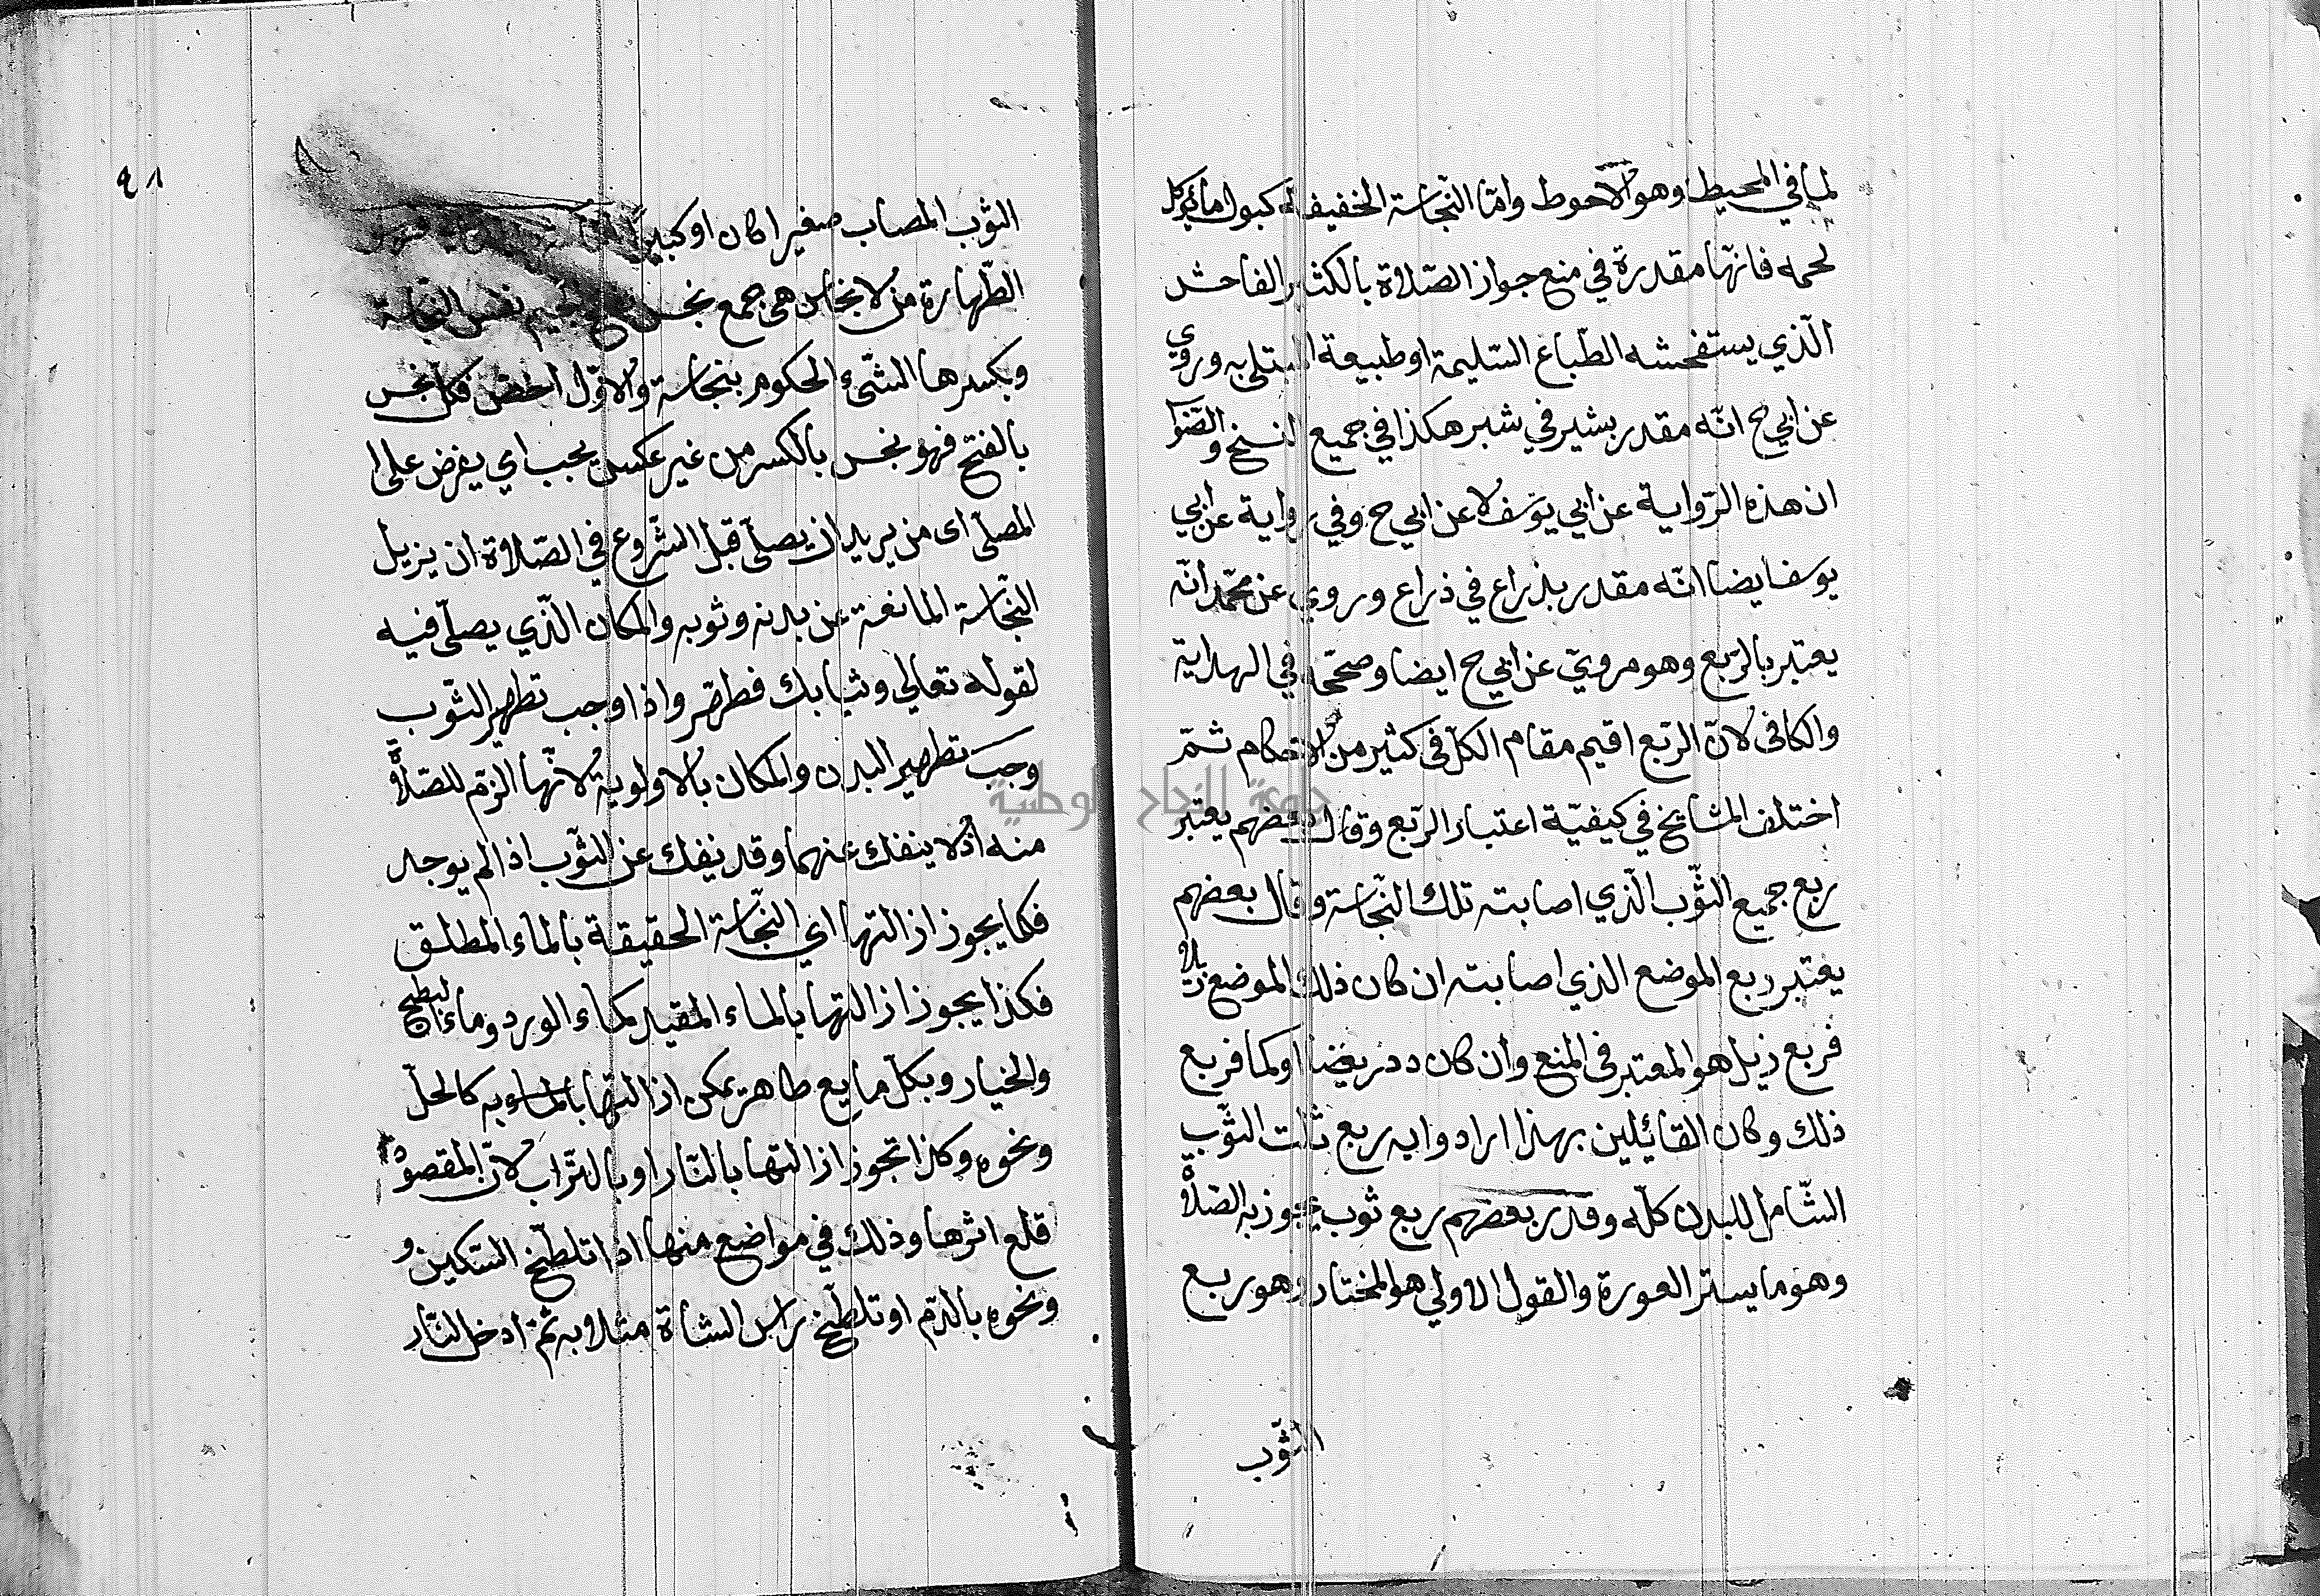 لما في المحيط وهو الاحوط واما النّجاسة الخفيفة كبول ما يؤكل
لحمه فانّها مقدرة في منع جواز الصّلاة بالكثير الفاحش
الّذي يستفحشه الطّباع السّليمة او طبيعة المبتلى به وروي
عن ابي ح انّه مقدر بشبر في شبر هكذا في جميع النسخ والصّوا
ان هذه الرّواية عن ابي يوسف لا عن ابي ح وفي رواية عن ابي
يوسف ايضا انّه مقدر بذراع في ذراع وروي عن محمّد انّه
يعتبر بالرّبع وهو مرويّ عن ابي ح ايضا وصحّحه في الهداية
والكافى لانّ الرّبع اقيم مقام الكلّ فى كثير من الاحكام ثمّ
اختلف المشايخ في كيفيّة اعتبار الرّبع وقال بعضهم يعتبر
ربع جميع الثّوب الّذي اصابته تلك النّجاسة وقال بعضهم
يعتبر ربع الموضع الذي اصابته ان كان ذلك الموضع ذيلا
فربع ذيل هو المعتبر فى المنع وان كان دخريضا او كما فربع
ذلك وكان القائيلين بهذا ارادوا به ربع ثلث الثّوب
الشّامل للبدن كلّه وقدر بعضهم ربع ثوب يجوز به الصّلاة
وهو ما يستر العورة والقول الاولي هو المختار وهو ربع
الثّوب
٤٨
الثّوب المصاب صغيرا كان او كبيرا
الطّهارة من الانجاس هى جمع نجس بفتح الجيم نفس النّجاسة
وبكسرها الشّيء المحكوم بنجاسة والاوّل اخصّ فكل نجس
بالفتح فهو نجس بالكسر من غير عكس يجب اي يفرض على ا
المصلّى اى من يريد ان يصلّى قبل الشّروع في الصّلاة ان يزيل
النّجاسة المانعة عن بدنه وثوبه والمكان الّذي يصلّى فيه
لقوله تعالي وثيابك فطهّر واذا وجب تطهير الثّوب
وجب تطهير البدن والمكان بالاولوية لانّها الزم للصّلاة
منه اذ لا ينفك عنهما وقد ينفك عن الثّوب اذا لم يوجد
فكما يجوز ازالتها اي النّجاسة الحقيقة بالماء المطلق
فكذا يجوز ازالتها بالماء المقيد كماء الورد وماء البطيخ
والخيار وبكلّ مايع طاهر يمكن ازالتها بالماء به كالخلّ
ونحوه وكذا تجوز ازالتها بالنّار او بالتّراب لانّ المقصود
قلع اثرها وذلك في مواضع منها اذا تلطّخ السّكين و
ونحوه بالدّم او تلطّخ راس الشاة مثلا به ثمّ ادخل النّار